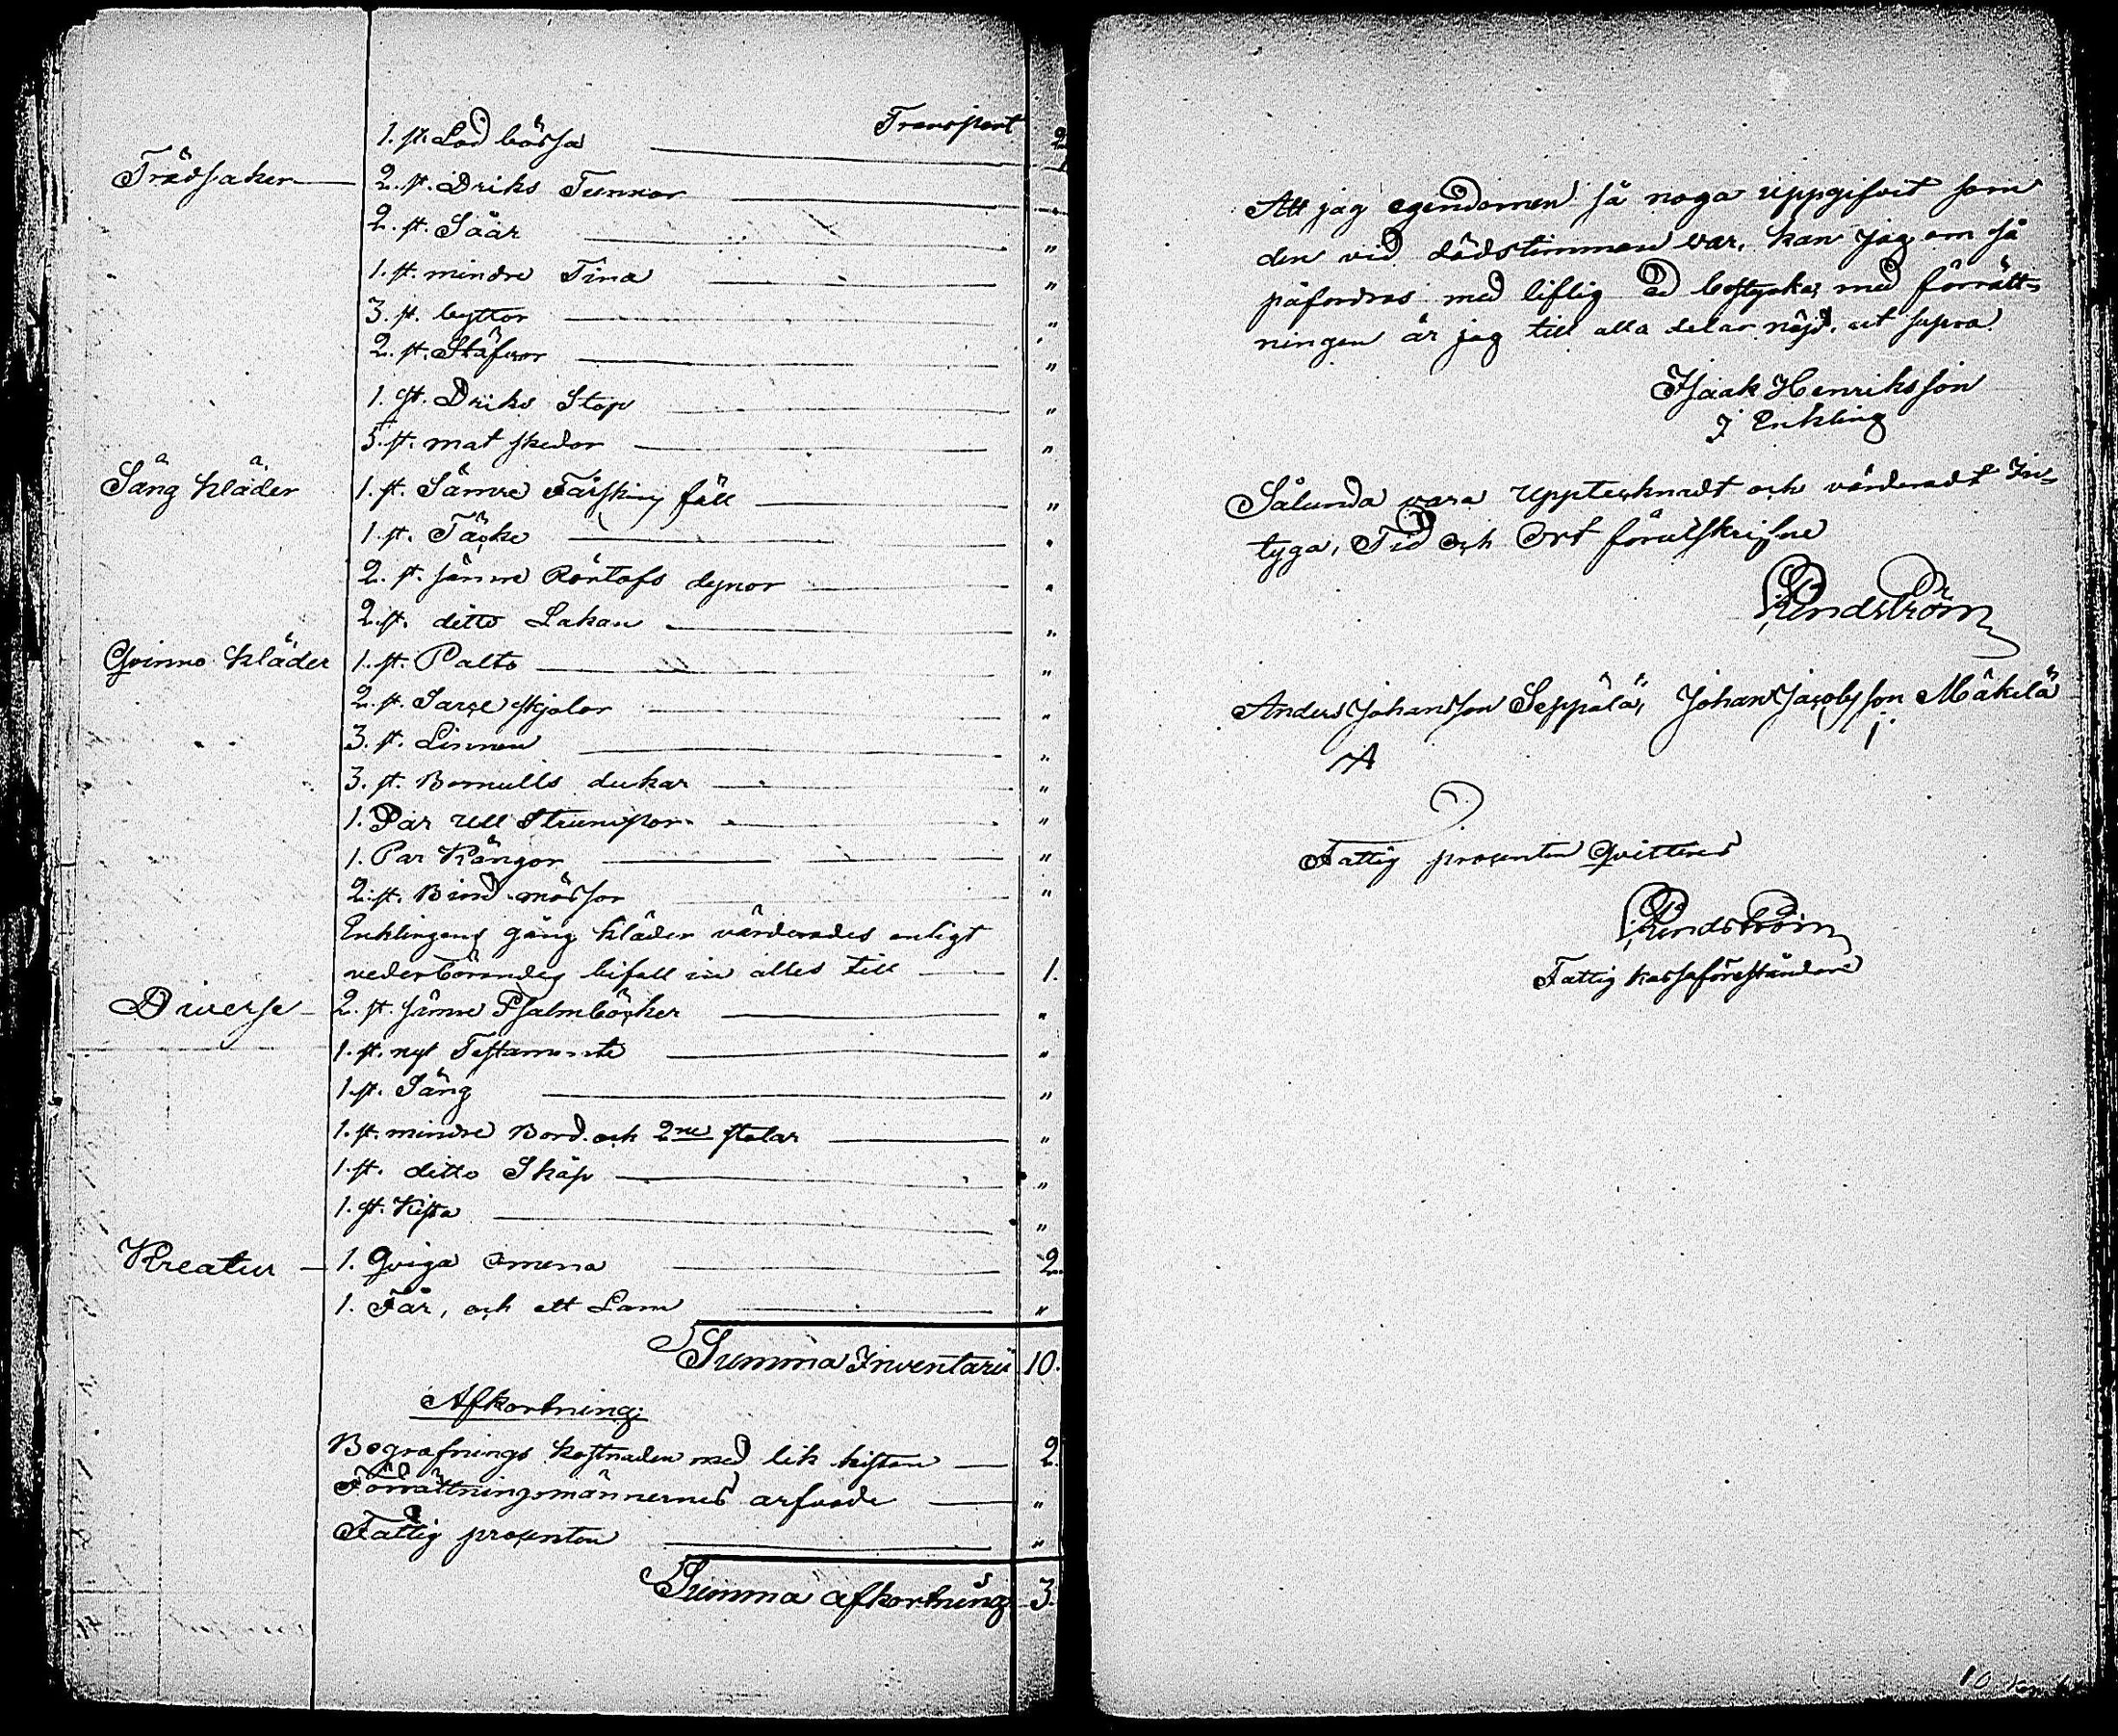 Transport 2
1. st. Lod bössa
Trädsaker 2. st. Driks Tunnor
2. st. Såär "
1. st. mindre Tina "
3. st. byttor "
2. st. Stäfvor "
1. st. Driks Stop "
5. st. mat skedor "
Säng kläder 1. st. Sämre Fårskins fäll "
1. st. Täcke "
2. st. sämre dynor "
2. st. ditto Lakan "
Qvinno kläder 1. st. Palto "
2. st. kjolar "
3. st. Linnen "
3. st. Bomulls dukar "
1. Par Ull Strumpor "
1. Par Kängor "
2. st. Bind mössor "
Enklingens gång kläder värderades enligt
vederbörandes bifall in alles till 1.
Diverse 2. st. sämre Psalmböcker "
1. st. nyt Testamente "
1. st. Säng "
1. st. mindre Bord och 2ne stolar "
1. st. ditto Skåp "
1. st. Kista "
Kreatur 1. Qviga Omena 2.
1. Får, och ett Lam "
Summa Inventarii 10.
Afkortning:
Begrafnings kostnaden med lik kistan 2.
Förrättningsmännernes arfvode "
Fattig procenten "
Summa afkortning 3.
Att jag egendomen så noga uppgifvit som
den vid dödstimman var, kan jag om så
påfordras med liflig Ed bestyrka, med förrätt-
ningen är jag till alla delar nöjd. ut supra
Isaak Henriksson
Enkling
Sålunda vara Upptecknadt och värderadt In-
tyga, Tid och Ort förutskrifne
Lindström
Anders Johansson Seppälä, Johan Jacobsson Mäkelä
Fattig procenten Qvitteras
Lindström
Fattig kassaföreståndare
10